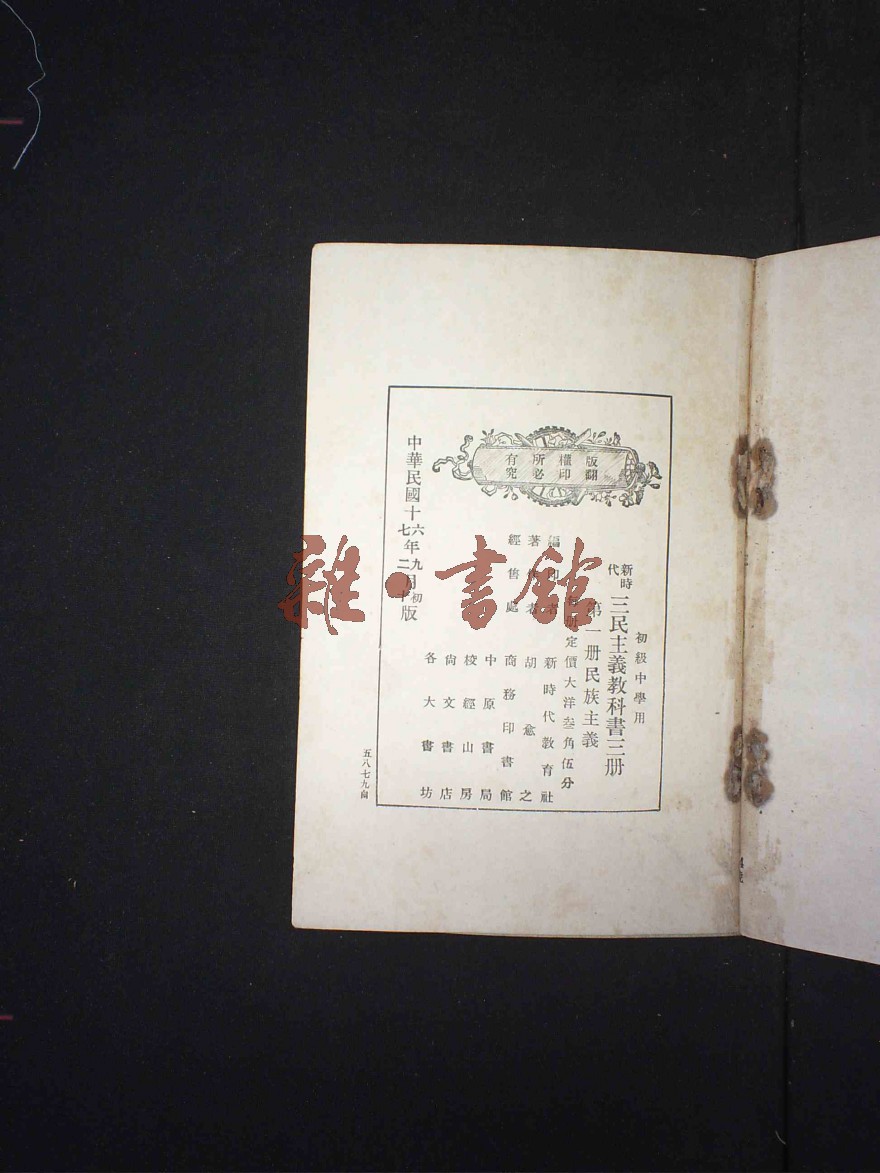 初級中學用
新時代三民主義教科書三册
第一册民族主義
每册定價大洋叁角伍分
版權所有
翻印必究
編印者 新時代教育社
著作者 胡愈之
經售處 商務印書館
中原書局
校經山房
尚文書店
各大書坊
中華民國十六年九月初版
五八七九自
雜·書館